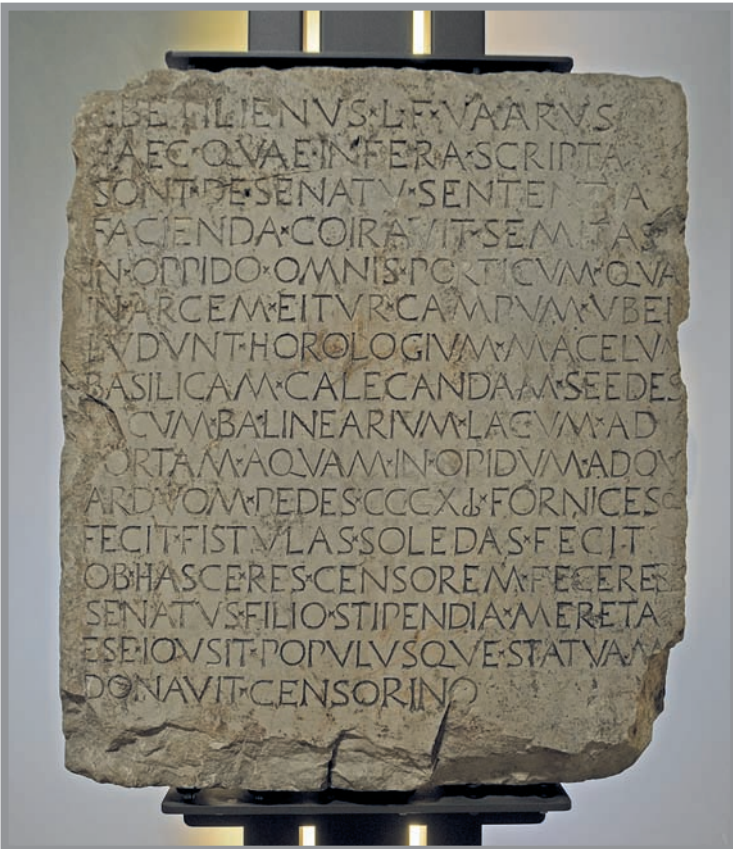 BETILIENVS·L·F·VAARVS
HAEC·QVAE·INFERA·SCRIPTA
SONT·DE·SENATV·SENTENTIA
FACIENDA·COIRAVIT·SEMITAS
IN·OPPIDO·OMNIS·PORTICVM·QVA
IN·ARCEM·EITVR·CAMPVM·VBEI
LVDVNT·HOROLOGIVM·MACELVM
BASILICAM·CALECANDAM·SEEDES
LACVM·BALINEARIVM·LACVM·AD
PORTAM·AQVAM·IN·OPIDVM·ADQV
ARDVOM·PEDES·CCCXↆ·FORNICES
FECIT·FISTVLAS·SOLEDAS·FECIT
OB·HASCE·RES·CENSOREM·FECERE
SENATVS·FILIO·STIPENDIA·MERETA
ESE·IOVSIT·POPVLVSQVE·STATVAM
DONAVIT·CENSORINO